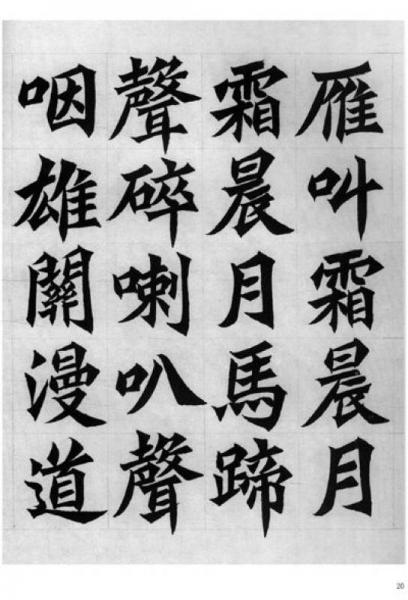 雁叫霜晨月
霜晨月馬蹄
聲碎喇叭聲
咽雄關漫道
20